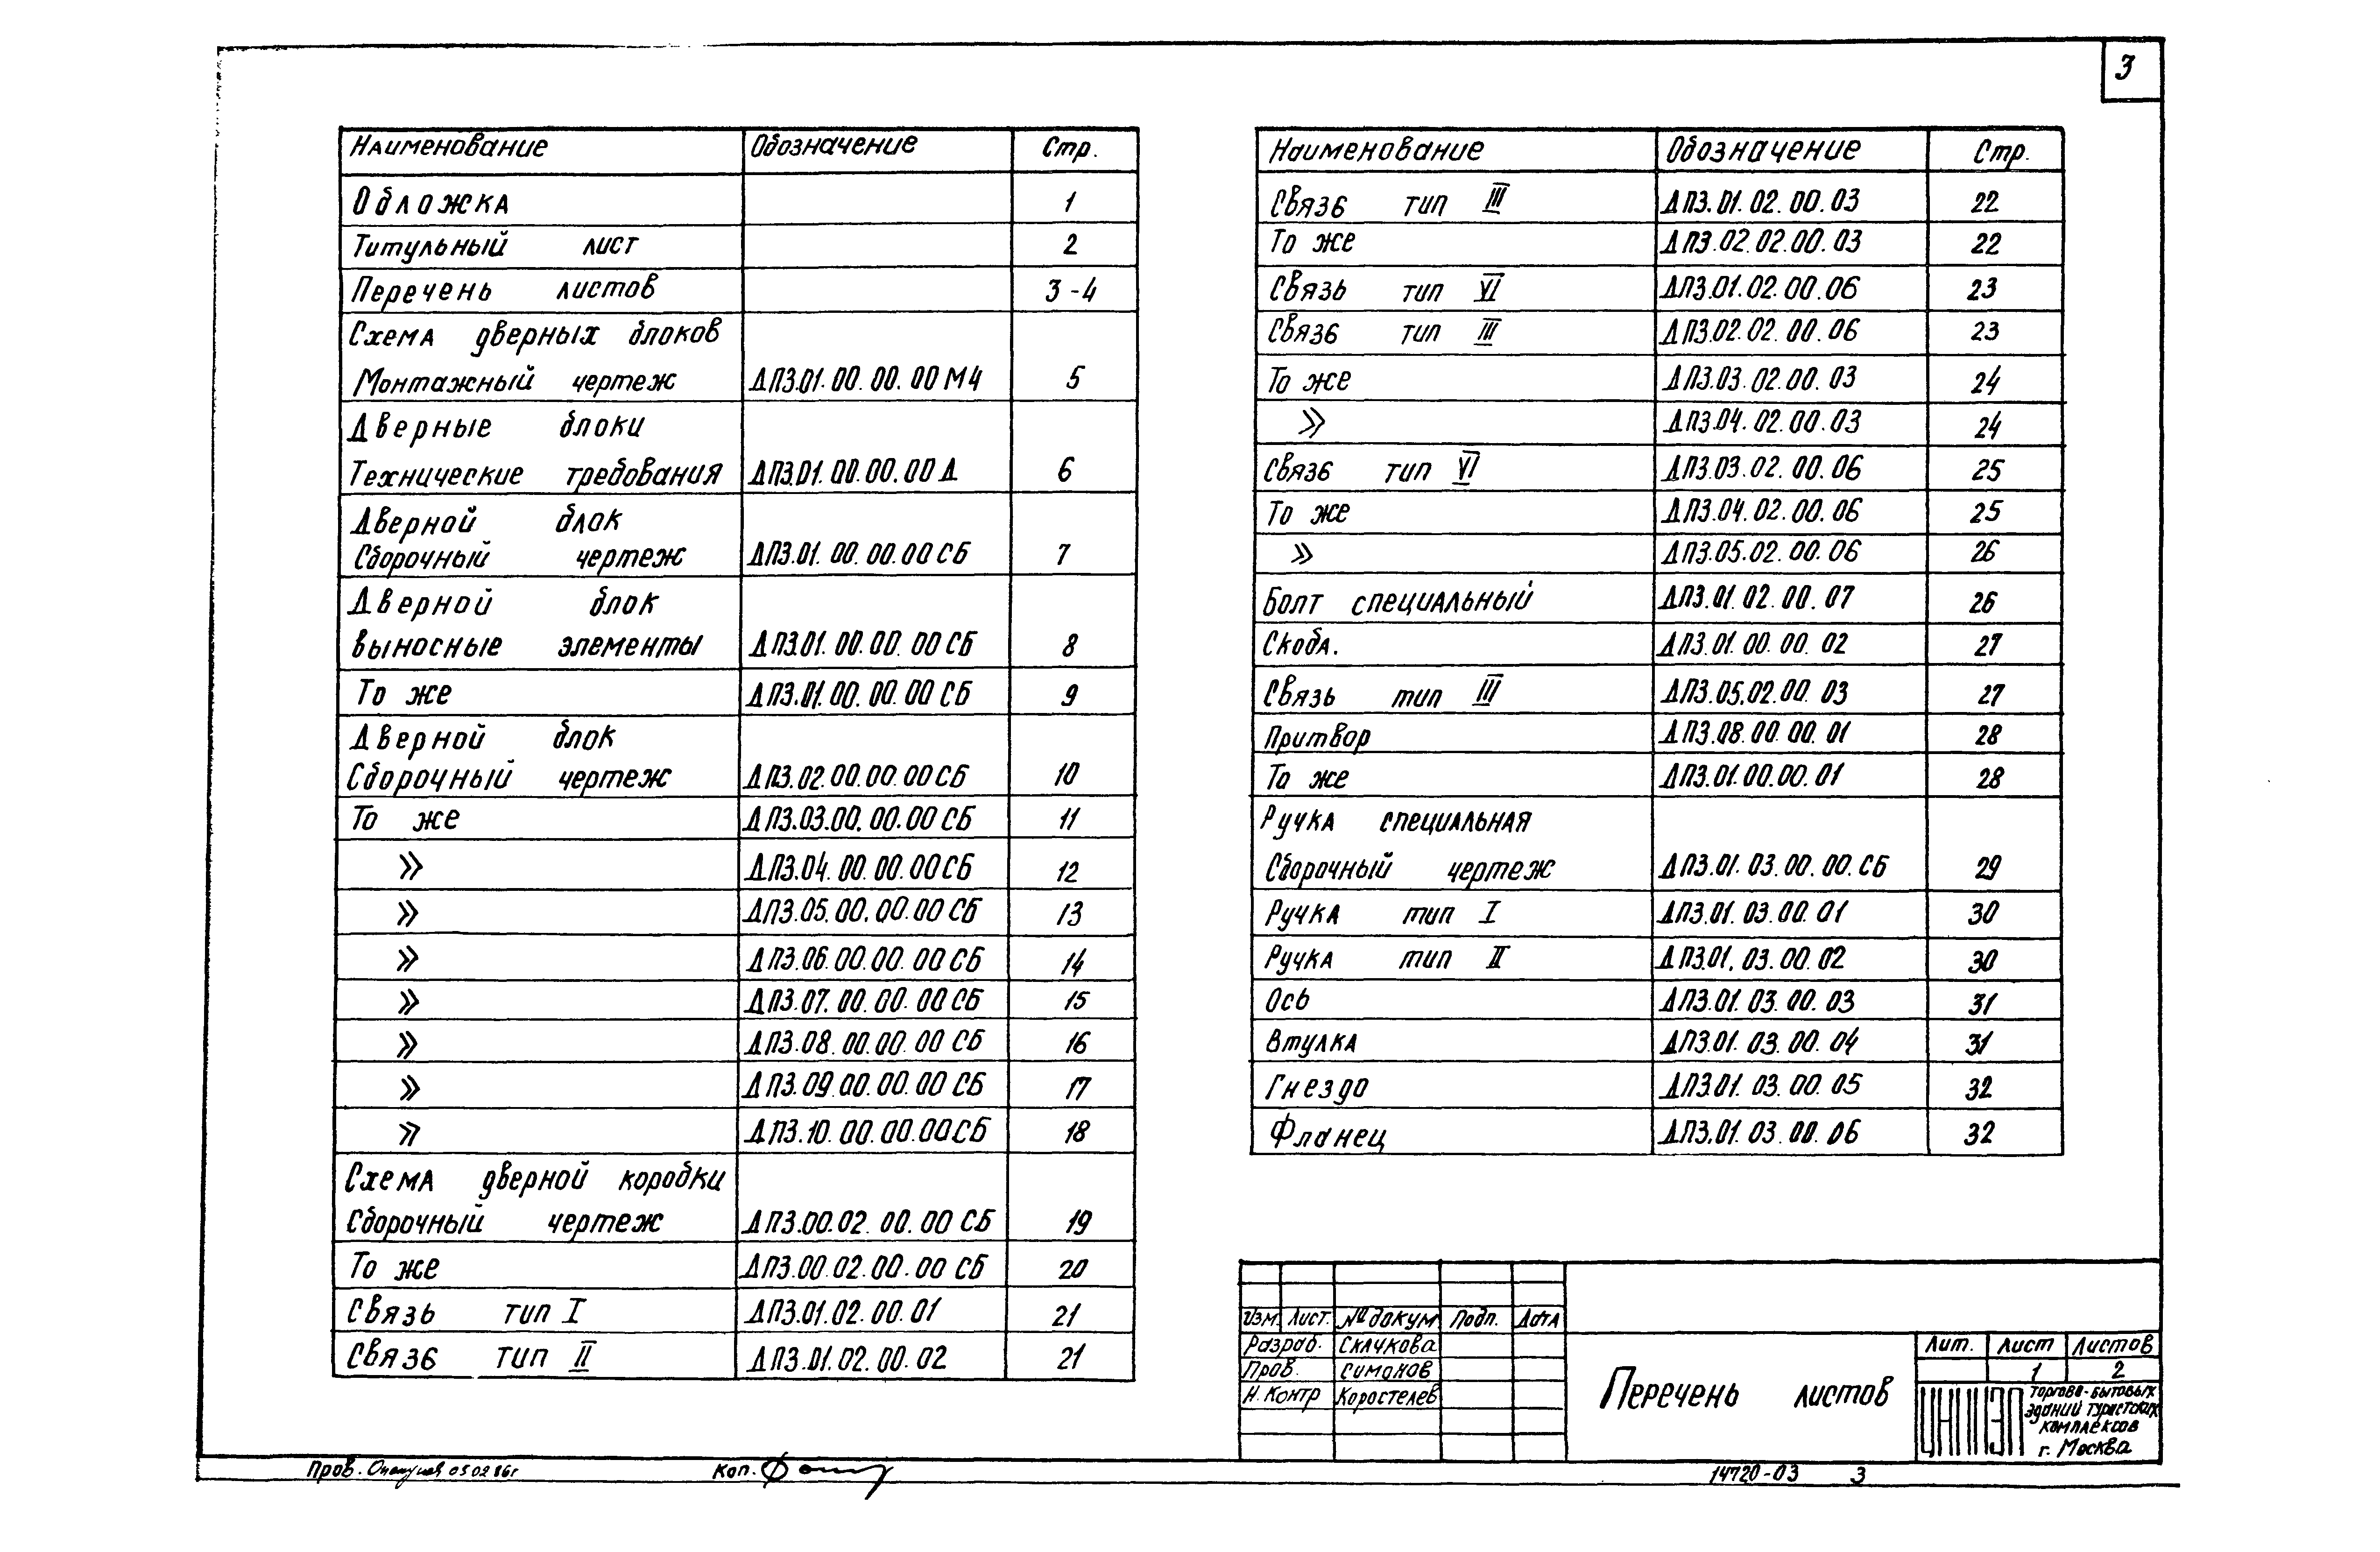 3
Наименование Обозначение Стр.
Обложка 1
Титульный лист 2
Перечень листов 3-4
Схема дверных блоков
Монтажный чертеж ДП3.01.00.00.00 МЧ 5
Дверные блоки
Технические требования ДП3.01.00.00.00 Д 6
Дверной блок
Сборочный чертеж ДП3.01.00.00.00 СБ 7
Дверной блок
выносные элементы ДП3.01.00.00.00 СБ 8
То же ДП3.01.00.00.00 СБ 9
Дверной блок
Сборочный чертеж ДП3.02.00.00.00 СБ 10
То же ДП3.03.00.00.00 СБ 11
» ДП3.04.00.00.00 СБ 12
» ДП3.05.00.00.00 СБ 13
» ДП3.06.00.00.00 СБ 14
» ДП3.07.00.00.00 СБ 15
» ДП3.08.00.00.00 СБ 16
» ДП3.09.00.00.00 СБ 17
» ДП3.10.00.00.00 СБ 18
Схема дверной коробки
Сборочный чертеж ДП3.00.02.00.00 СБ 19
То же ДП3.00.02.00.00 СБ 20
Связь тип I ДП3.01.02.00.01 21
Связь тип II ДП3.01.02.00.02 21
Наименование Обозначение Стр.
Связь тип III ДП3.01.02.00.03 22
То же ДП3.02.02.00.03 22
Связь тип VI ДП3.01.02.00.06 23
Связь тип III ДП3.02.02.00.06 23
То же ДП3.03.02.00.03 24
» ДП3.04.02.00.03 24
Связь тип VI ДП3.03.02.00.06 25
То же ДП3.04.02.00.06 25
» ДП3.05.02.00.06 26
Болт специальный ДП3.01.02.00.07 26
Скоба. ДП3.01.00.00.02 27
Связь тип III ДП3.05.02.00.03 27
Притвор ДП3.08.00.00.01 28
То же ДП3.01.00.00.01 28
Ручка специальная
Сборочный чертеж ДП3.01.03.00.00.СБ 29
Ручка тип I ДП3.01.03.00.01 30
Ручка тип II ДП3.01.03.00.02 30
Ось ДП3.01.03.00.03 31
Втулка ДП3.01.03.00.04 31
Гнездо ДП3.01.03.00.05 32
Фланец ДП3.01.03.00.06 32
Изм. Лист. № докум Подп. Дата
Разраб. Склчкова
Пров. Симонов
Н. Контр Коростелев
Перечень листов
Лит. Лист Листов
1 2
ЦНИИЭП торгово-бытовых
зданий туристских
комплексов
г. Москва
Пров. 05 02 86г Коп.
14720-03 3